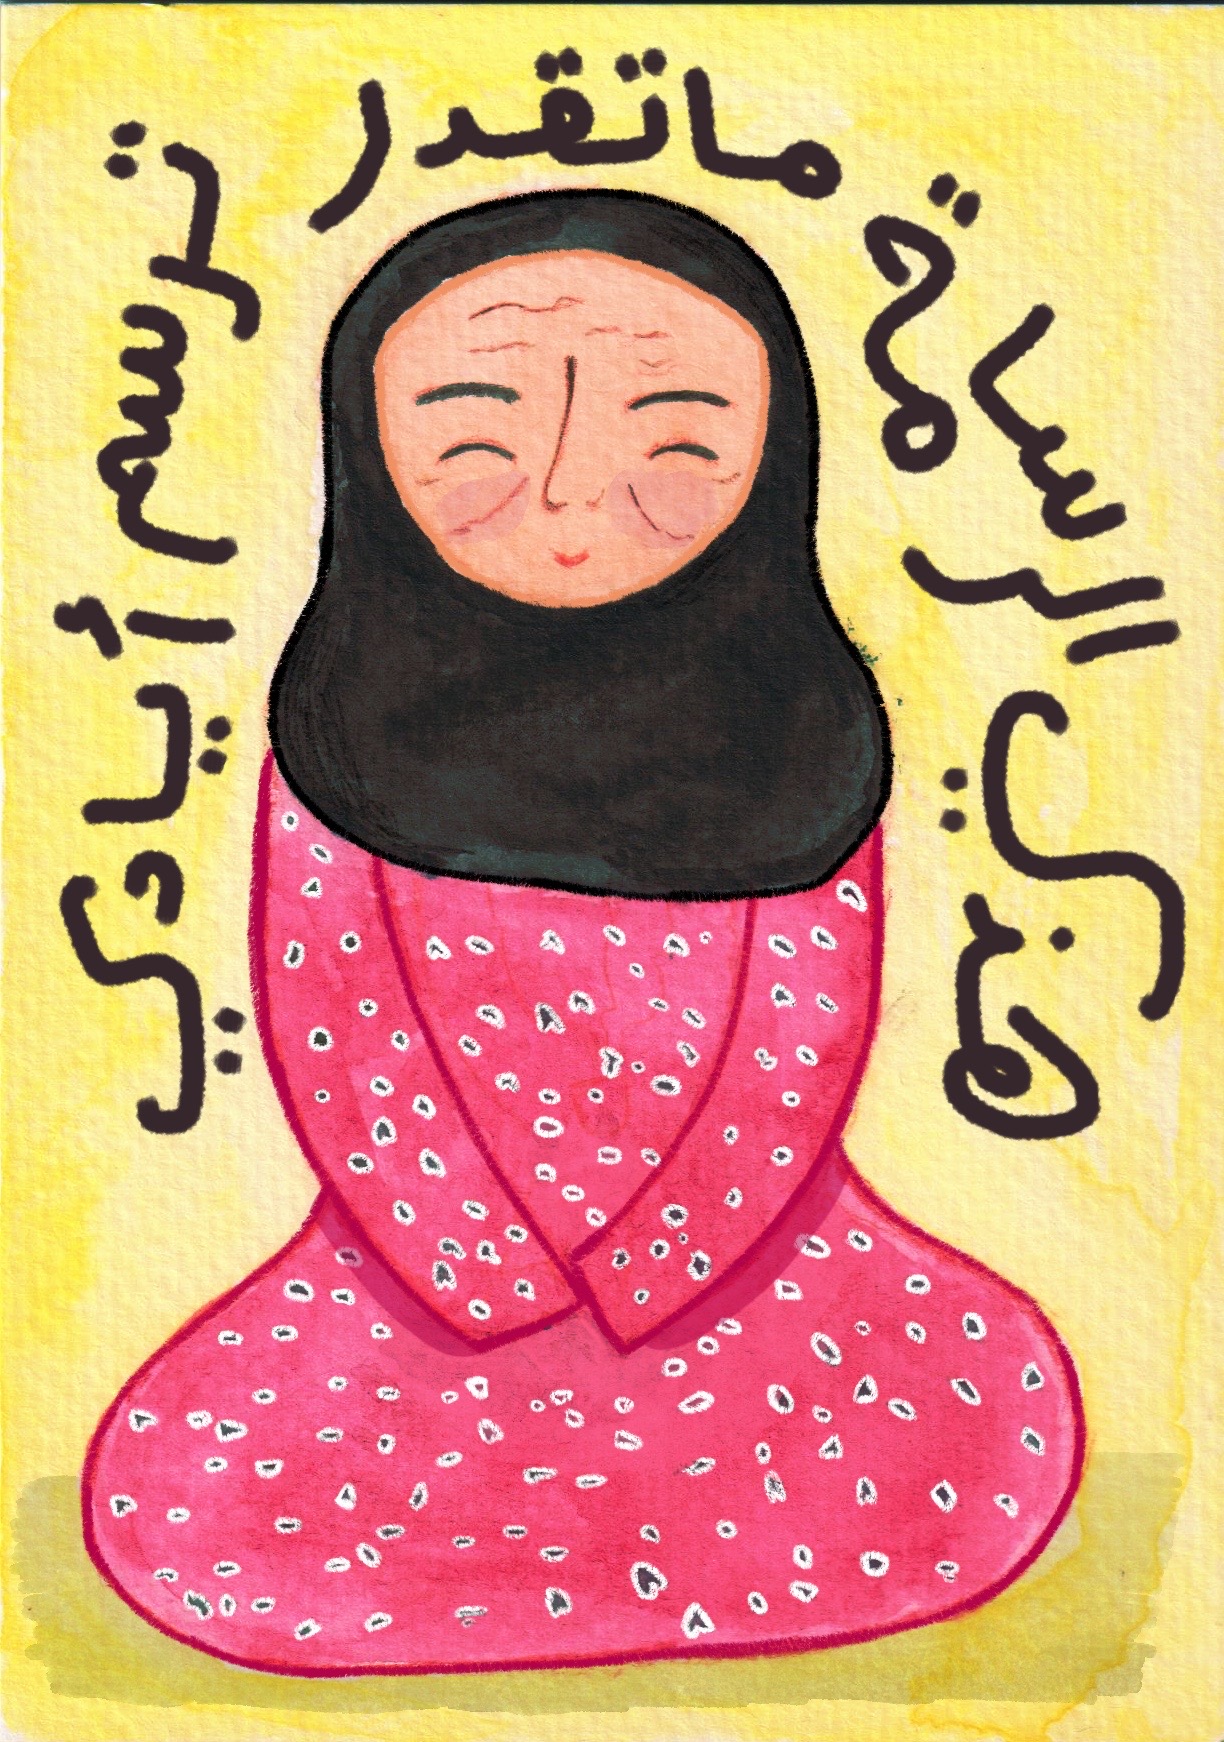 هذي الرسامة ماتقدر ترسم أيادي